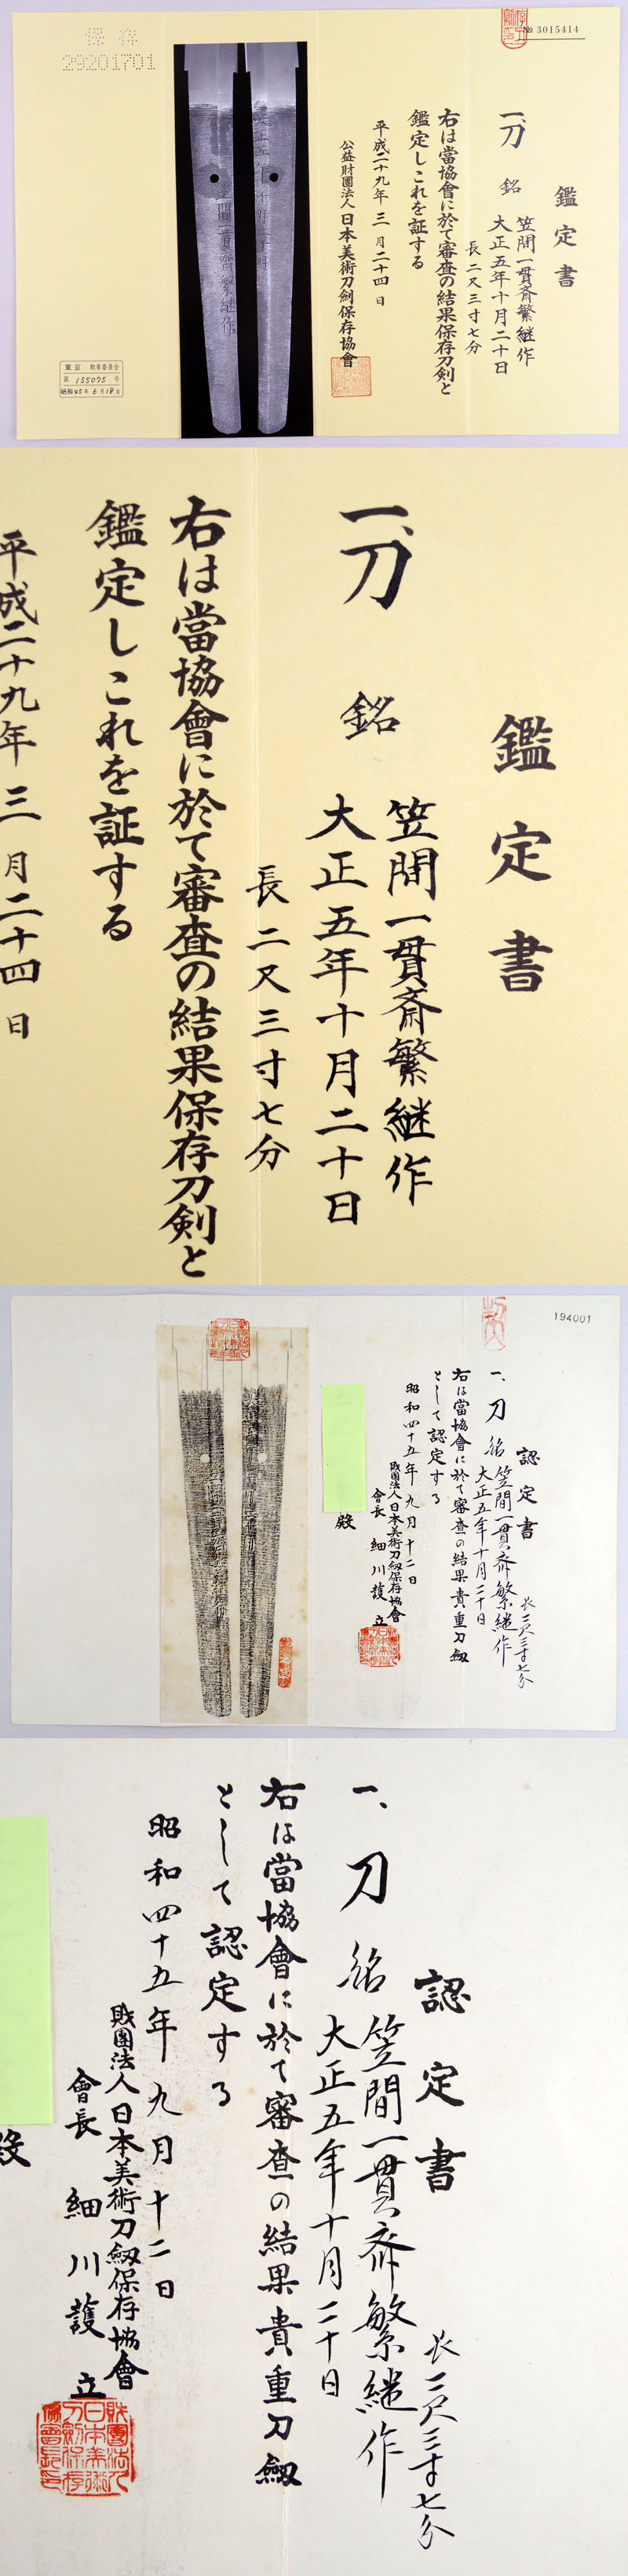 保存
29201701
№ 3015414
鑑定書
一、刀
銘
笠間一貫斎繁継作
大正五年十月二十日
長二尺三寸七分
右は當協會に於て審査の結果保存刀剣と
鑑定しこれを証する
平成二十九年三月二十四日
公益財團法人日本美術刀剣保存協會
東京 教育委員会
第 155075 号
昭和45年6月18日
鑑定書
一、刀
銘
笠間一貫斎繁継作
大正五年十月二十日
長二尺三寸七分
右は當協會に於て審査の結果保存刀剣と
鑑定しこれを証する
平成二十九年三月二十四日
194001
認定書
一、刀
銘
笠間一貫斎繁継作
大正五年十月二十日
長二尺三寸七分
右は當協會に於て審査の結果貴重刀劔
として認定する
昭和四十五年九月十二日
財團法人日本美術刀劔保存協會
會長 細川護立
殿
認定書
長二尺三寸七分
一、刀
銘
笠間一貫斎繁継作
大正五年十月二十日
右は當協會に於て審査の結果貴重刀劔
として認定する
昭和四十五年九月十二日
財團法人日本美術刀劔保存協會
會長 細川護立
殿